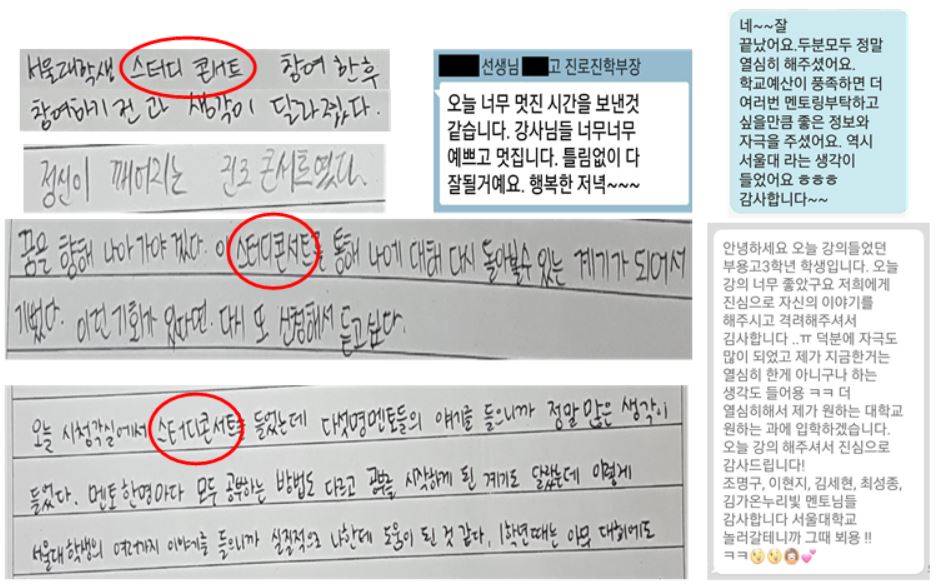 서울대학생 스터디 콘서트 참여 한후
참여하기 전 과 생각이 달라졌다.
정신이 깨어지는 진로콘서트였다.
꿈을 향해 나아가야 겠다. 이 스터디콘서트를 통해 나에 대해 다시 돌아볼수 있는 계기가 되어서
기뻤다. 이런 기회가 있다면 다시 또 신청해서 듣고싶다.
오늘 시청각실에서 스터디콘서트를 들었는데 다섯명멘토들의 얘기를 들으니까 정말 많은 생각이
들었다. 멘토 한명마다 모두 공부하는 방법도 다르고 공부를 시작하게 된 계기도 달랐는데 이렇게
서울대학생의 여러가지 이야기를 들으니까 실질적으로 나한테 도움이 된 것 같다. 1학년때는 아무 대회에도
선생님 고 진로진학부장
오늘 너무 멋진 시간을 보낸것
같습니다. 강사님들 너무너무
예쁘고 멋집니다. 틀림없이 다
잘될거예요. 행복한 저녁~~~
네~~잘
끝났어요.두분모두 정말
열심히 해주셨어요.
학교예산이 풍족하면 더
여러번 멘토링부탁하고
싶을만큼 좋은 정보와
자극을 주셨어요. 역시
서울대 라는 생각이
들었어요 ㅎㅎㅎ
감사합니다~~
안녕하세요 오늘 강의들었던
부용고3학년 학생입니다. 오늘
강의 너무 좋았구요 저희에게
진심으로 자신의 이야기를
해주시고 격려해주셔서
김사합니다 ..ㅠ 덕분에 자극도
많이 되었고 제가 지금한거는
열심히 한게 아니구나 하는
생각도 들어용 ㅋㅋ 더
열심히해서 제가 원하는 대학교
원하는 과에 입학하겠습니다.
오늘 강의 해주셔서 진심으로
감사드립니다!
조명구, 이현지, 김세현, 최성종,
김가온누리빛 멘토님들
감사합니다 서울대학교
놀러갈테니까 그때 뵈용 !!
ㅋㅋ😉😉🙆💕